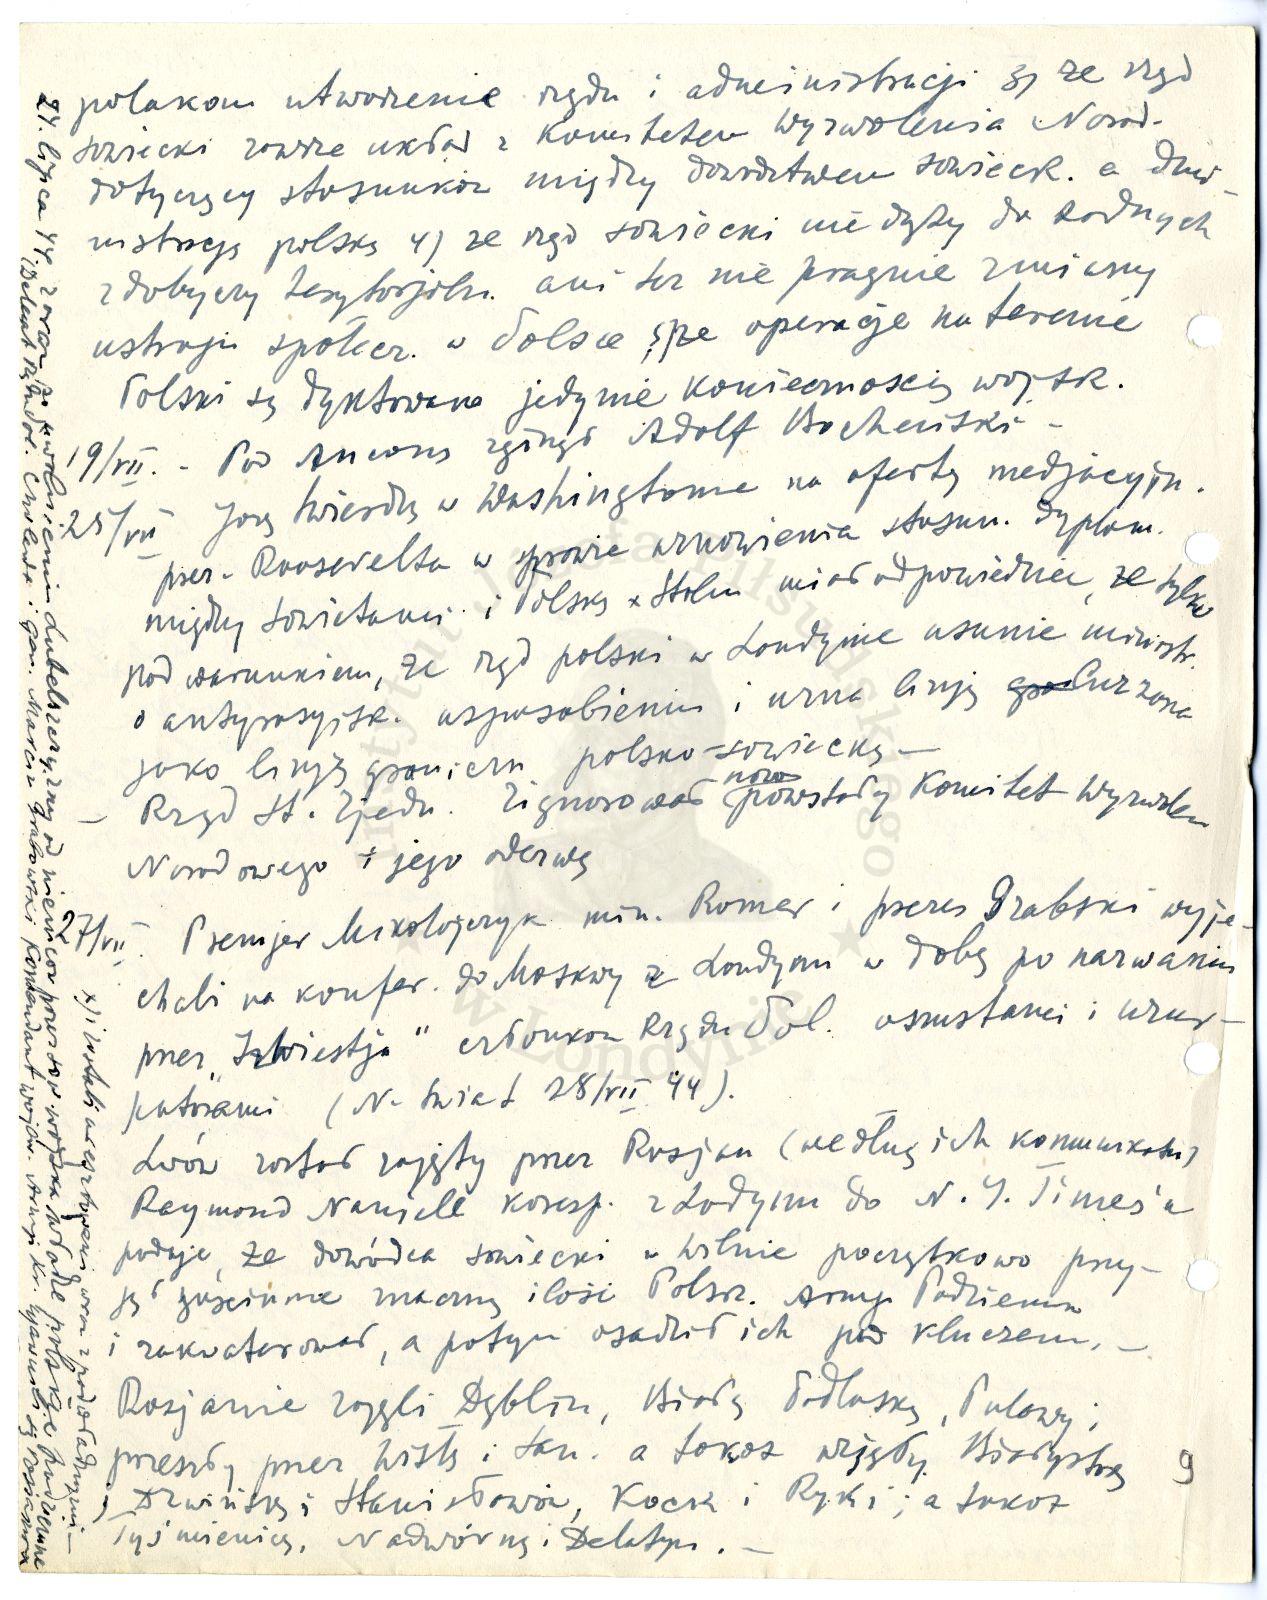 polakom utworzenie rządu i administracji 3) że rząd
sowiecki zawrze układ z Komitetem Wyzwolenia Narod.
dotyczący stosunków między dowództwem sowieck. a admi-
nistracją polską 4) że rząd sowiecki nie dąży do żadnych
zdobyczy terytorjaln. ani też nie pragnie zmiany
ustroju społecz. w Polsce, że operacje na terenie
Polski są dyktowane jedynie koniecznością wojsk.
19/VII. - Pod Anconą zginął Adolf Bocheński -
25/VII Jak twierdzą w Washingtonie na ofertę medjacyjn.
prez. Roosevelta w sprawie wznowienia stosun. dyplom.
między Sowietami i Polską Stalin miał odpowiedzieć, że tylko
pod warunkiem, że rząd polski w Londynie usunie ministr.
o antyrosyjsk. usposobieniu i uzna linję Curzona
jako linję graniczn. polsko-sowiecką —
— Rząd St. Zjedn. zignorował nowo powstały Komitet Wyzwolen
Narodowego i jego odezwę
27/VII. Premjer Mikołajczyk min. Romer i prezes Grabski wyje-
chali na konfer. do Moskwy z Londynu w dobę po nazwaniu
przez „Izwiestja" członków Rządu Pol. oszustami i uzur-
patorami (N. Świat 28/VII 44).
Lwów został zajęty przez Rosjan (według ich komunikatu)
Raymond Daniell koresp. z Lodynu do N. Y. Times'a
podaje, że dowódca sowiecki w Wilnie początkowo przy-
jął gościnnie znaczną ilość Polsk. Armji Podziemn
i zakwaterował, a potym osadził ich pod kluczem. —
Rosjanie zajęli Dęblin, Białą Podlaską, Puławy i
przeszły przez Wisłę i San. a także wzięły Białystok
Dźwińsk i Stanisławów, Kock i Ryki; a także
Tyśmienicą, Nadwórną i Delatyn. —
9
24. lipca 44. zaraz po uwolnieniu Lubelszczyzny od niemców przez sow. wojska władze polskie podziemne
(Delegat Rządu Pol. Cholewa i gen. Marcin Grabowski Komendant wojew. Armji Kr. ujawnili się Rosjanom
x) i zostali aresztowani wraz z podwładnymi —